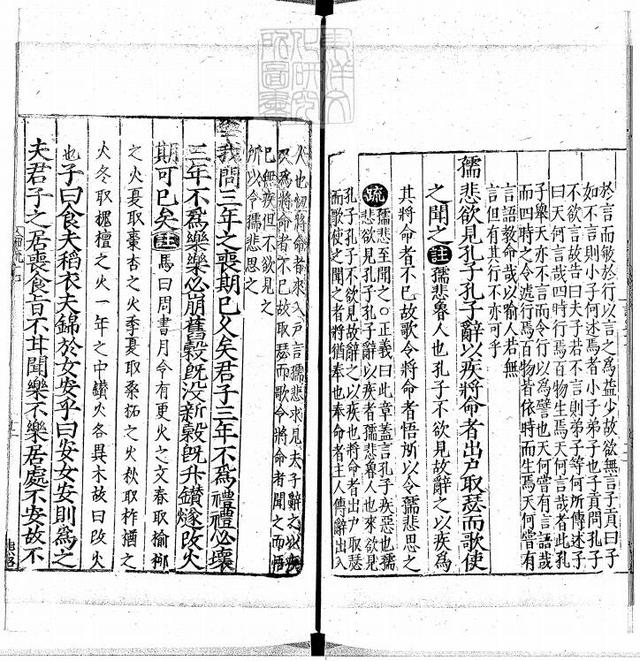 於言而敏於行以言之為益少故欲無言子貢曰子
如不言則小子何述焉者小子弟子也子貢問孔子
不欲言故告曰夫子若不言則弟子等何所傳述子
曰天何言哉四時行焉百物生焉天何言哉者此孔
子舉天亦不言而令行以為譬也天何嘗有言語哉
而四時之令遞行焉百物皆依時而生焉天何嘗有
言語教命哉以喻人若無
言但有其行不亦可乎
孺悲欲見孔子孔子辭以疾將命者出戶取瑟而歌使
之聞之註孺悲魯人也孔子不欲見故辭之以疾為
其將命者不已故歌令將命者悟所以令孺悲思之
疏孺悲至聞之○正義曰此章蓋言孔子疾惡也孺
悲欲見孔子孔子辭以疾者孺悲魯人也來欲見
孔子孔子不欲見故辭之以疾也將命者出戶取瑟
而歌使之聞之者將猶奉也奉命者主人傳辭出入
人也初將命者來入戶言孺悲求見夫子辭之以疾
又為將命者不已故取瑟而歌令將命者聞之而悟
已無疾但不欲見之
所以令孺悲思之
宰我問三年之喪期已久矣君子三年不為禮禮必壞
三年不為樂樂必崩舊穀既没新穀既升鑽燧改火
期可已矣註馬曰周書月令有更火之文春取榆柳
之火夏取棗杏之火季夏取桑柘之火秋取柞楢之
火冬取槐檀之火一年之中鑽火各異木故曰改火
也子曰食夫稻衣夫錦於女安乎曰安女安則為之
夫君子之居喪食旨不甘聞樂不樂居處不安故不